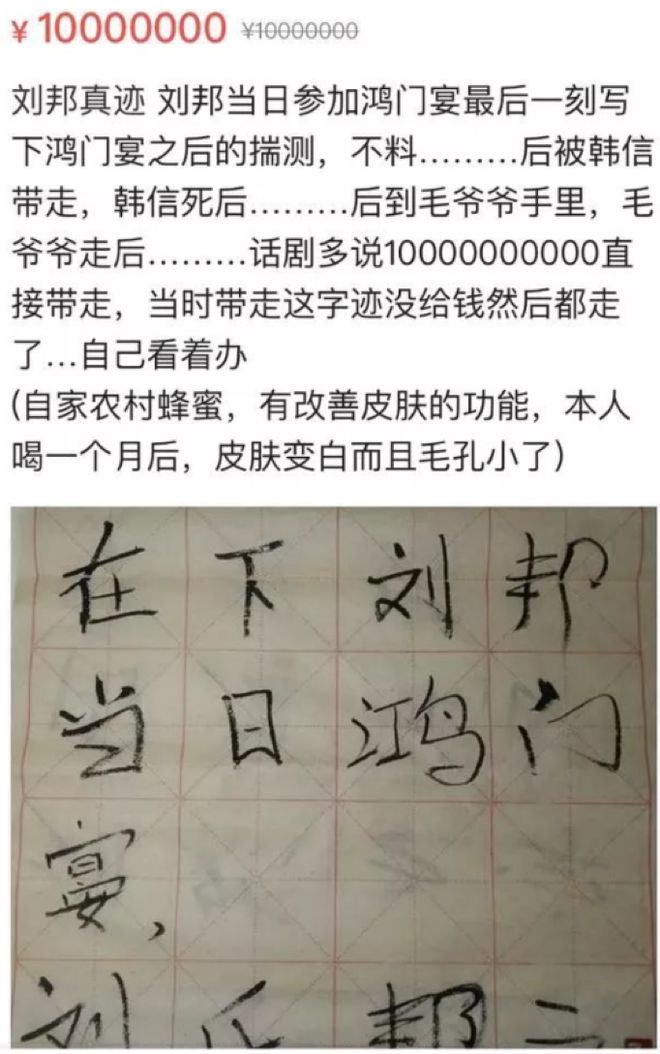 ¥ 10000000 ¥10000000
刘邦真迹 刘邦当日参加鸿门宴最后一刻写
下鸿门宴之后的揣测，不料………后被韩信
带走，韩信死后………后到毛爷爷手里，毛
爷爷走后………话剧多说10000000000直
接带走，当时带走这字迹没给钱然后都走
了…自己看着办
(自家农村蜂蜜，有改善皮肤的功能，本人
喝一个月后，皮肤变白而且毛孔小了)
在下刘邦
当日鸿门
宴，
刘氏邦二